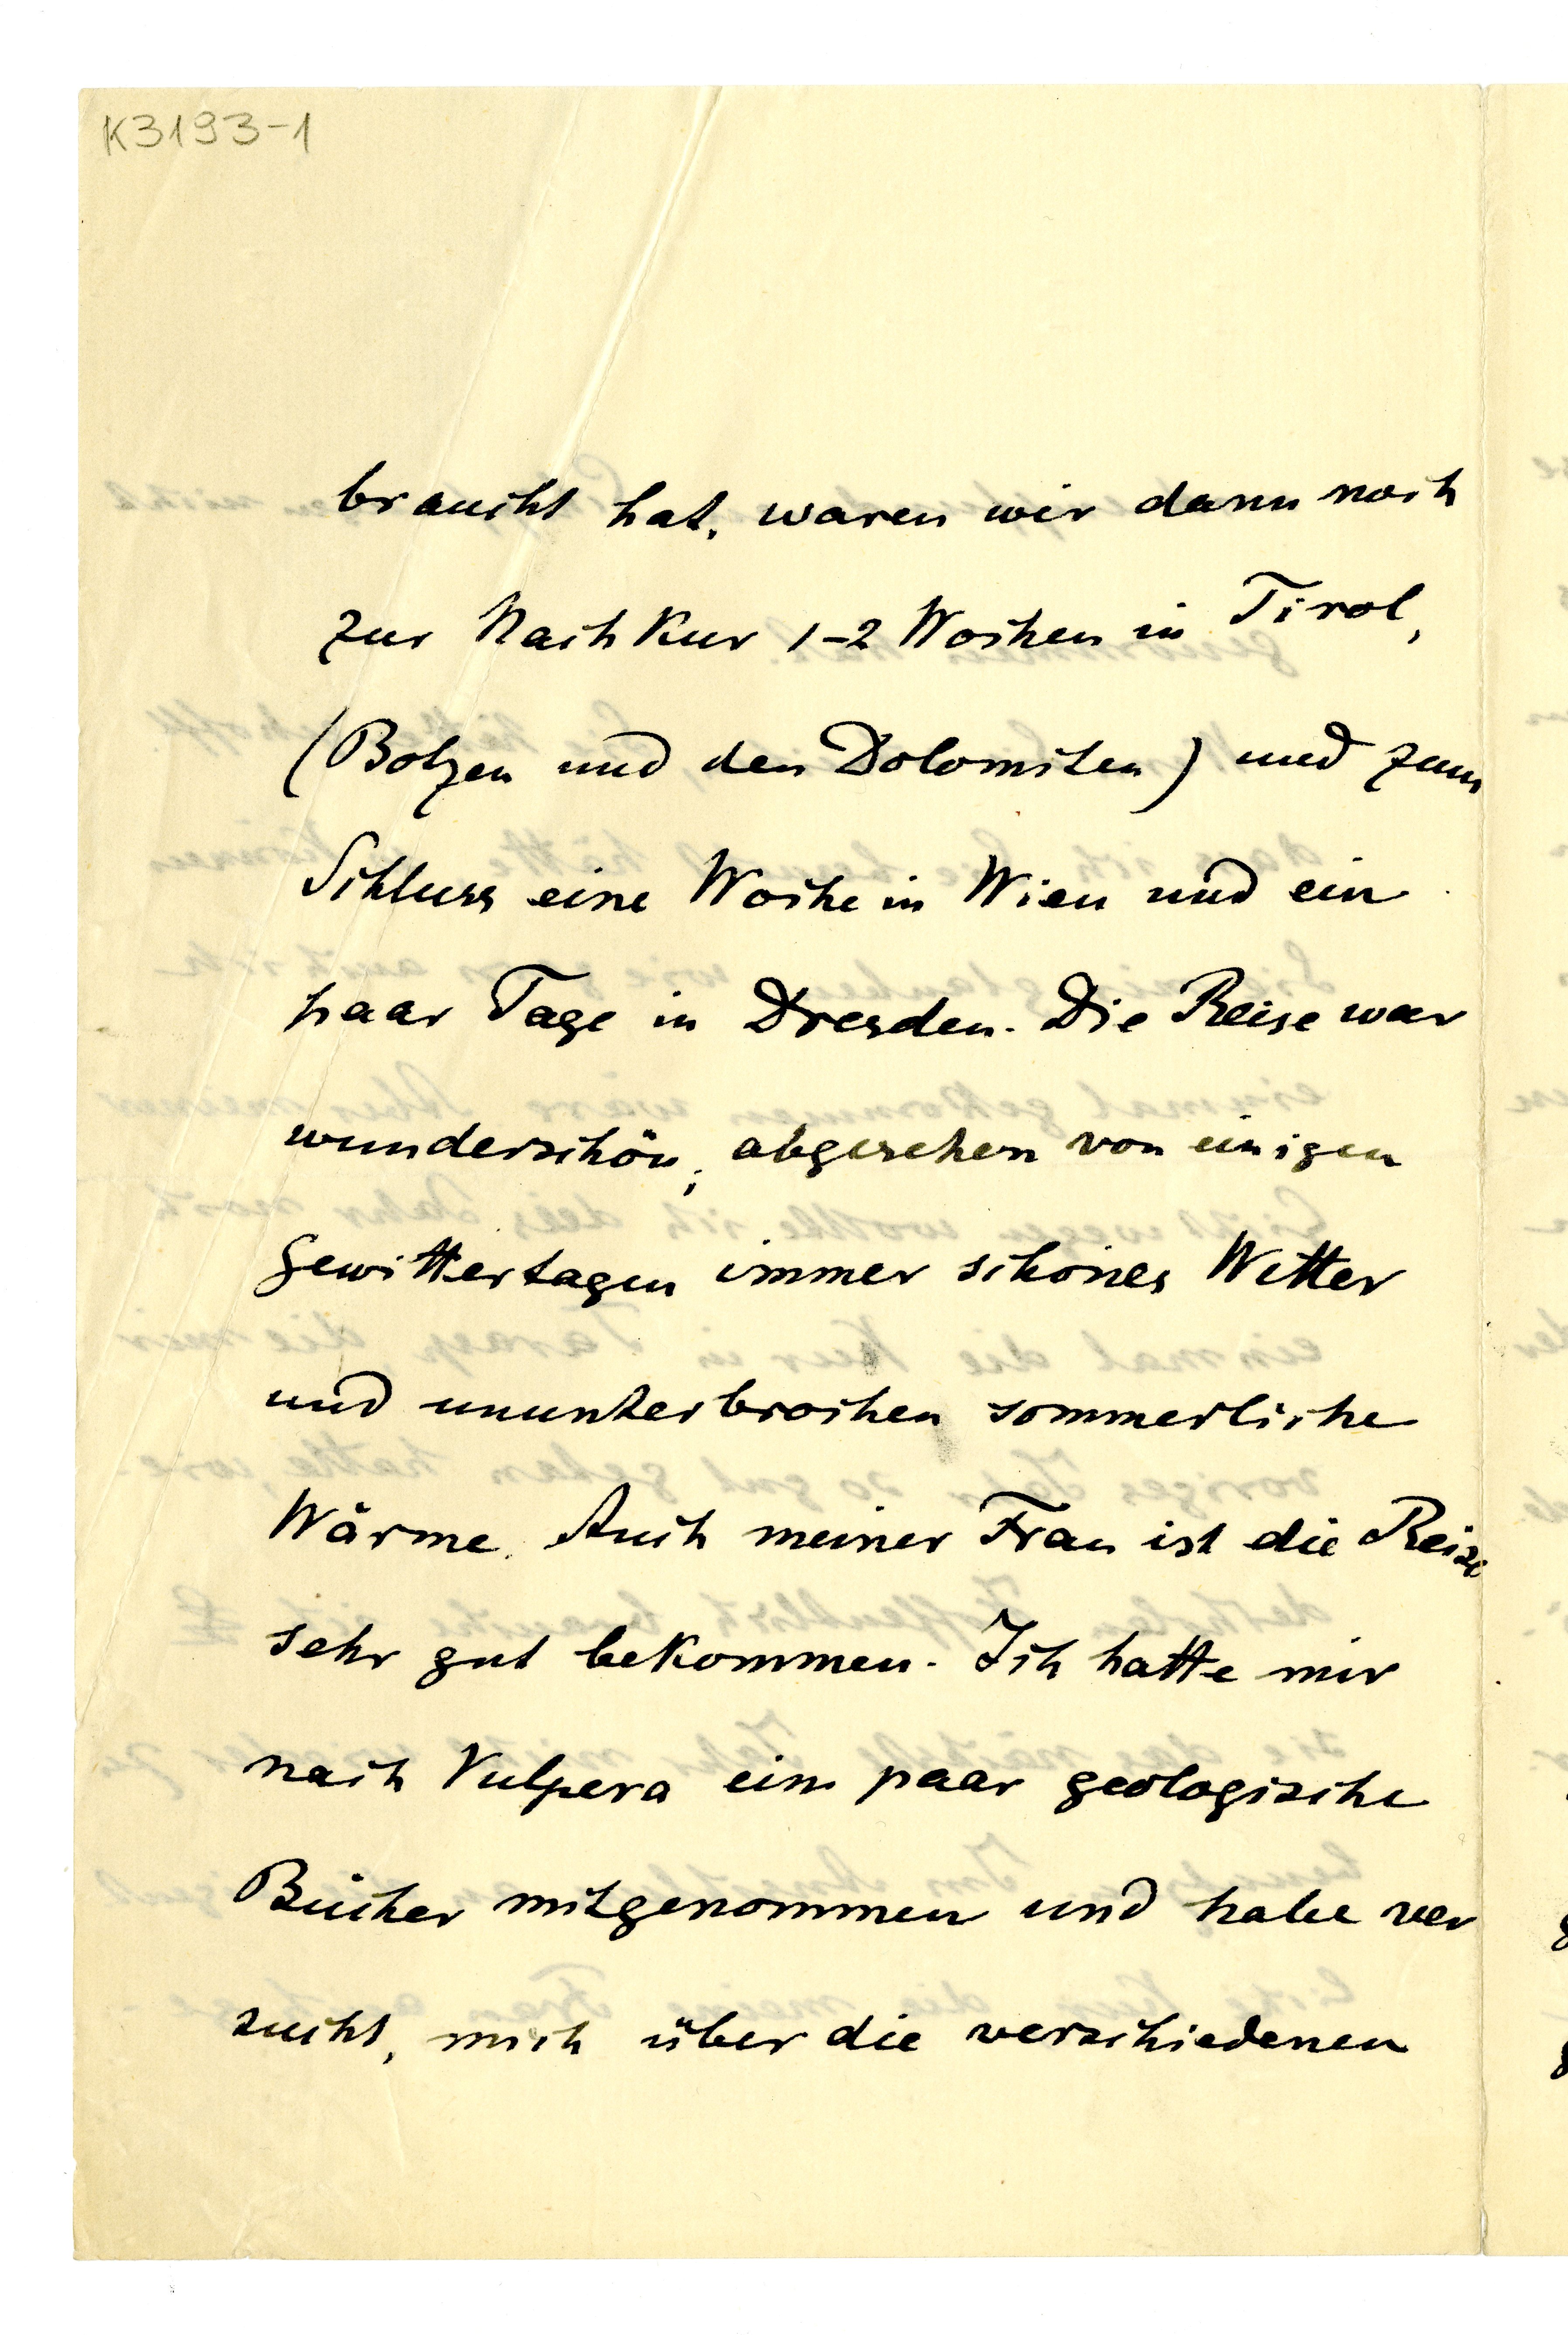 K3193-1
braucht hat, waren wir dann noch
zur Nachkur 1-2 Wochen in Tirol,
(Botzen und den Dolomiten) und zum
Schluss eine Woche in Wien und ein
paar Tage in Dresden. Die Reise war
wunderschön, abgesehen von einigen
Gewittertagen immer schönes Wetter
und ununterbrochen sommerliche
Wärme. Auch meiner Frau ist die Reise
sehr gut bekommen. Ich hatte mir
nach Vulpera ein paar geologische
Bücher mitgenommen und habe ver
sucht, mich über die verschiedenen